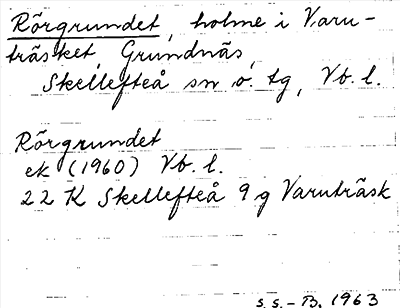 Rörgrundet, holme i Varu-
träsket, Grundnäs,
Skellefteå sn o. tg, Vb. l.
Rörgrundet
ek (1960) Vb. l.
22 K Skellefteå 9 g Varuträsk
S. S. - B, 1963